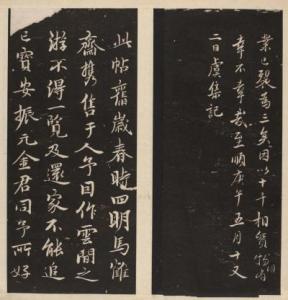 業已裂為三矣因以十千相質物固有
幸不幸哉至順庚午五月十又
二日虞集記
此帖舊歲春時四明馬離
齋攜售于人予因作雲間之
游不得一覽及還家不能追
已寶安振元金君同予所好